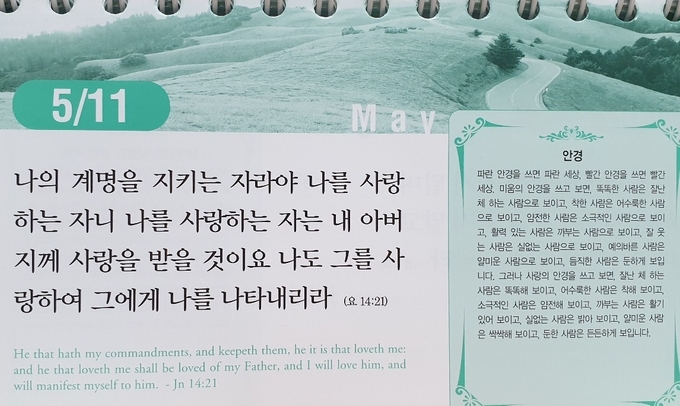 5/11
May
나의 계명을 지키는 자라야 나를 사랑
하는 자니 나를 사랑하는 자는 내 아버
지께 사랑을 받을 것이요 나도 그를 사
랑하여 그에게 나를 나타내리라 (요. 14:21)
He that hath my commandments, and keepeth them, he it is that loveth me:
and he that loveth me shall be loved of my Father, and I will love him, and
will manifest myself to him. - Jn 14:21
안경
파란 안경을 쓰면 파란 세상, 빨간 안경을 쓰면 빨간
세상, 미움의 안경을 쓰고 보면, 똑똑한 사람은 잘난
체 하는 사람으로 보이고, 착한 사람은 어수룩한 사람
으로 보이고, 얌전한 사람은 소극적인 사람으로 보이
고, 활력 있는 사람은 까부는 사람으로 보이고, 잘 웃
는 사람은 실없는 사람으로 보이고, 예의바른 사람은
얄미운 사람으로 보이고, 듬직한 사람은 둔하게 보입
니다. 그러나 사랑의 안경을 쓰고 보면, 잘난 체 하는
사람은 똑똑해 보이고, 어수룩한 사람은 착해 보이고,
소극적인 사람은 얌전해 보이고, 까부는 사람은 활기
있어 보이고, 실없는 사람은 밝아 보이고, 얄미운 사람
은 싹싹해 보이고, 둔한 사람은 든든하게 보입니다.